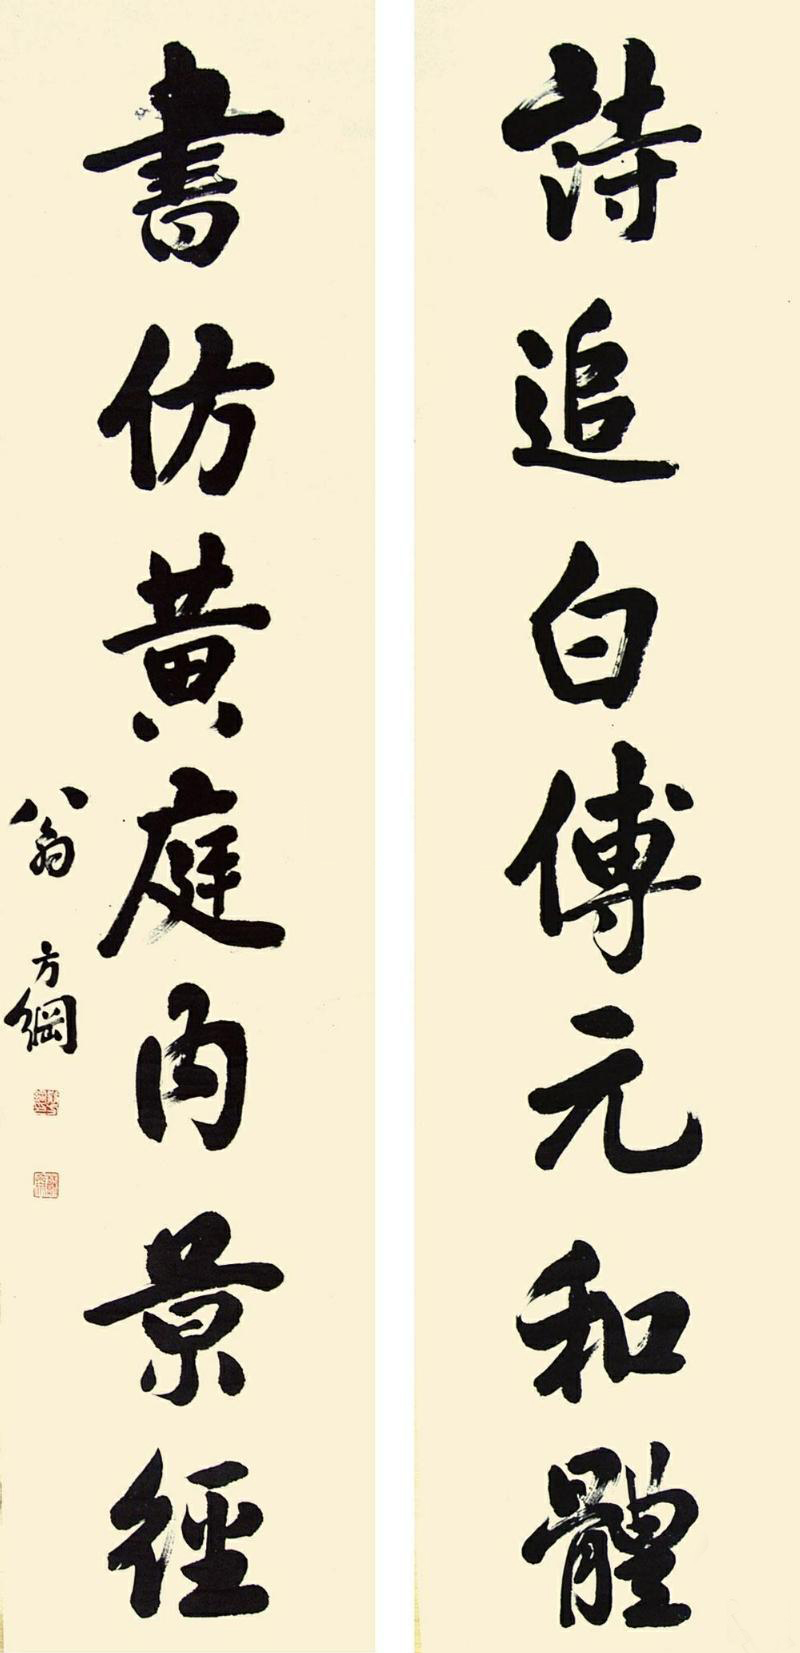 詩追白傅元和體
書仿黃庭內景徑
翁方綱